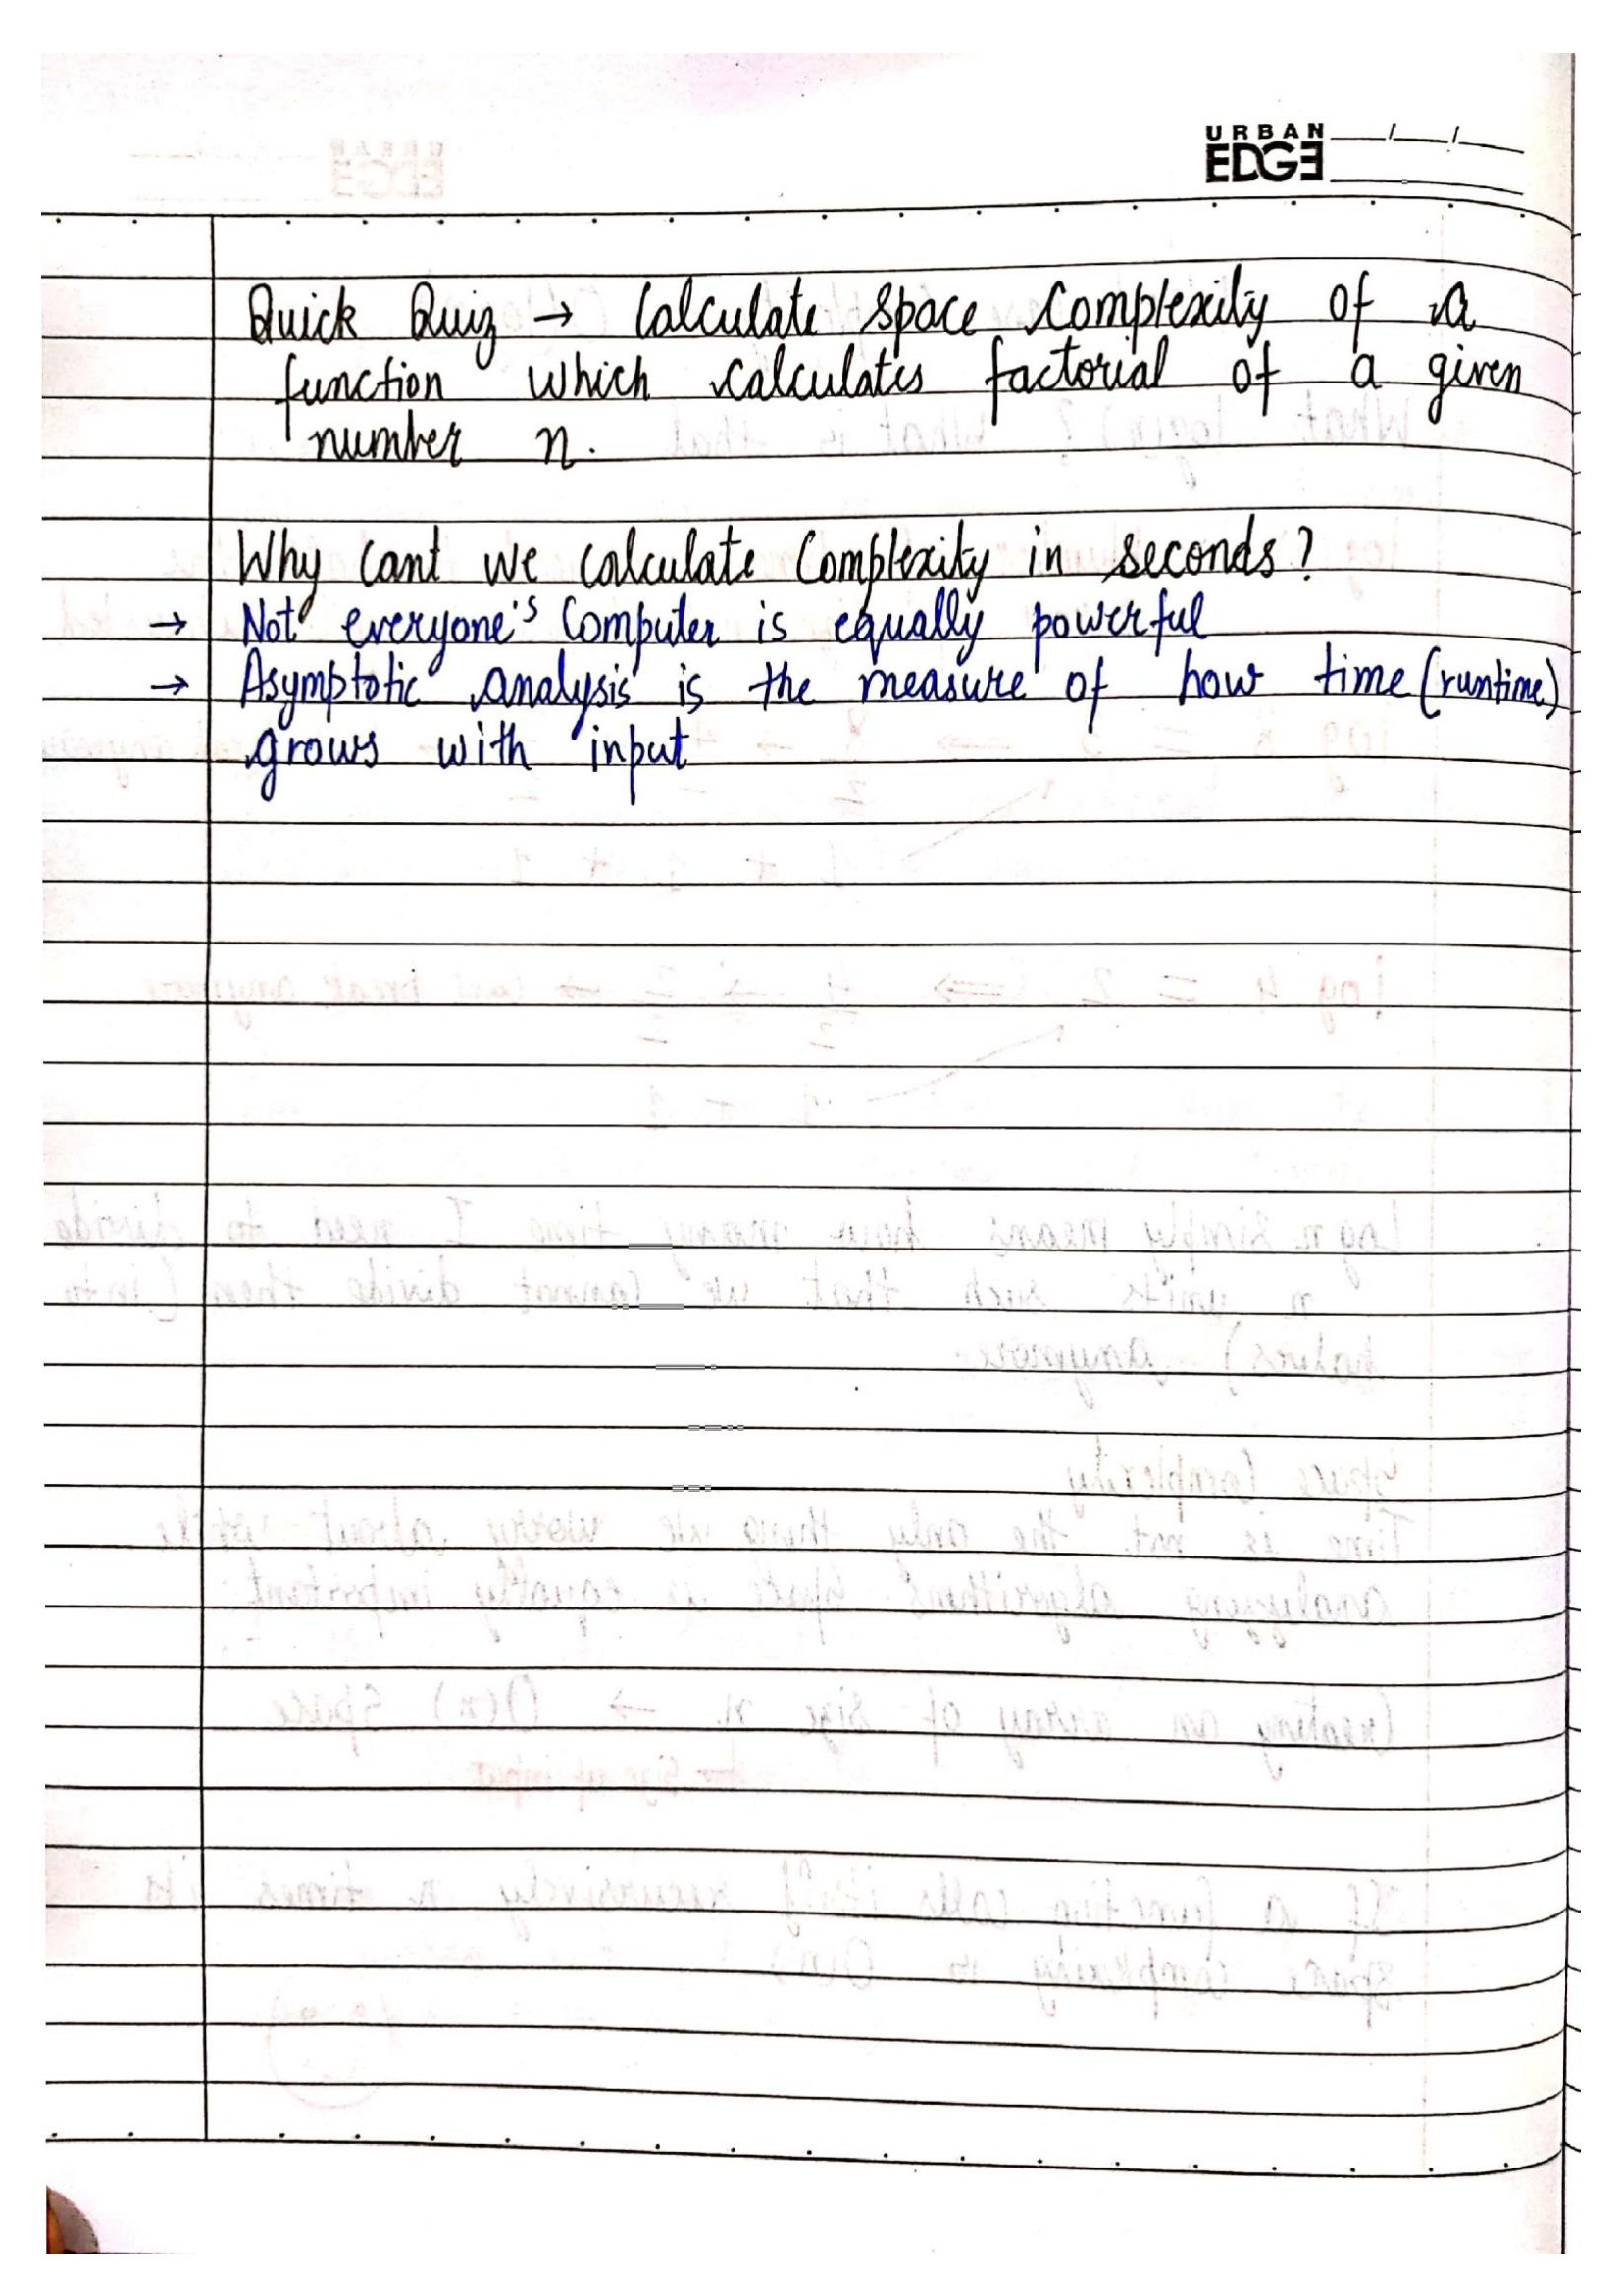 URBAN
EDGE
Quick Quiz → Calculate space complexity of a
function which calculates factorial of a given
number n.
Why cant we calculate complexity in seconds?
→ Not everyone's computer is equally powerful
→ Asymptotic analysis is the measure of how time (runtime)
grows with input